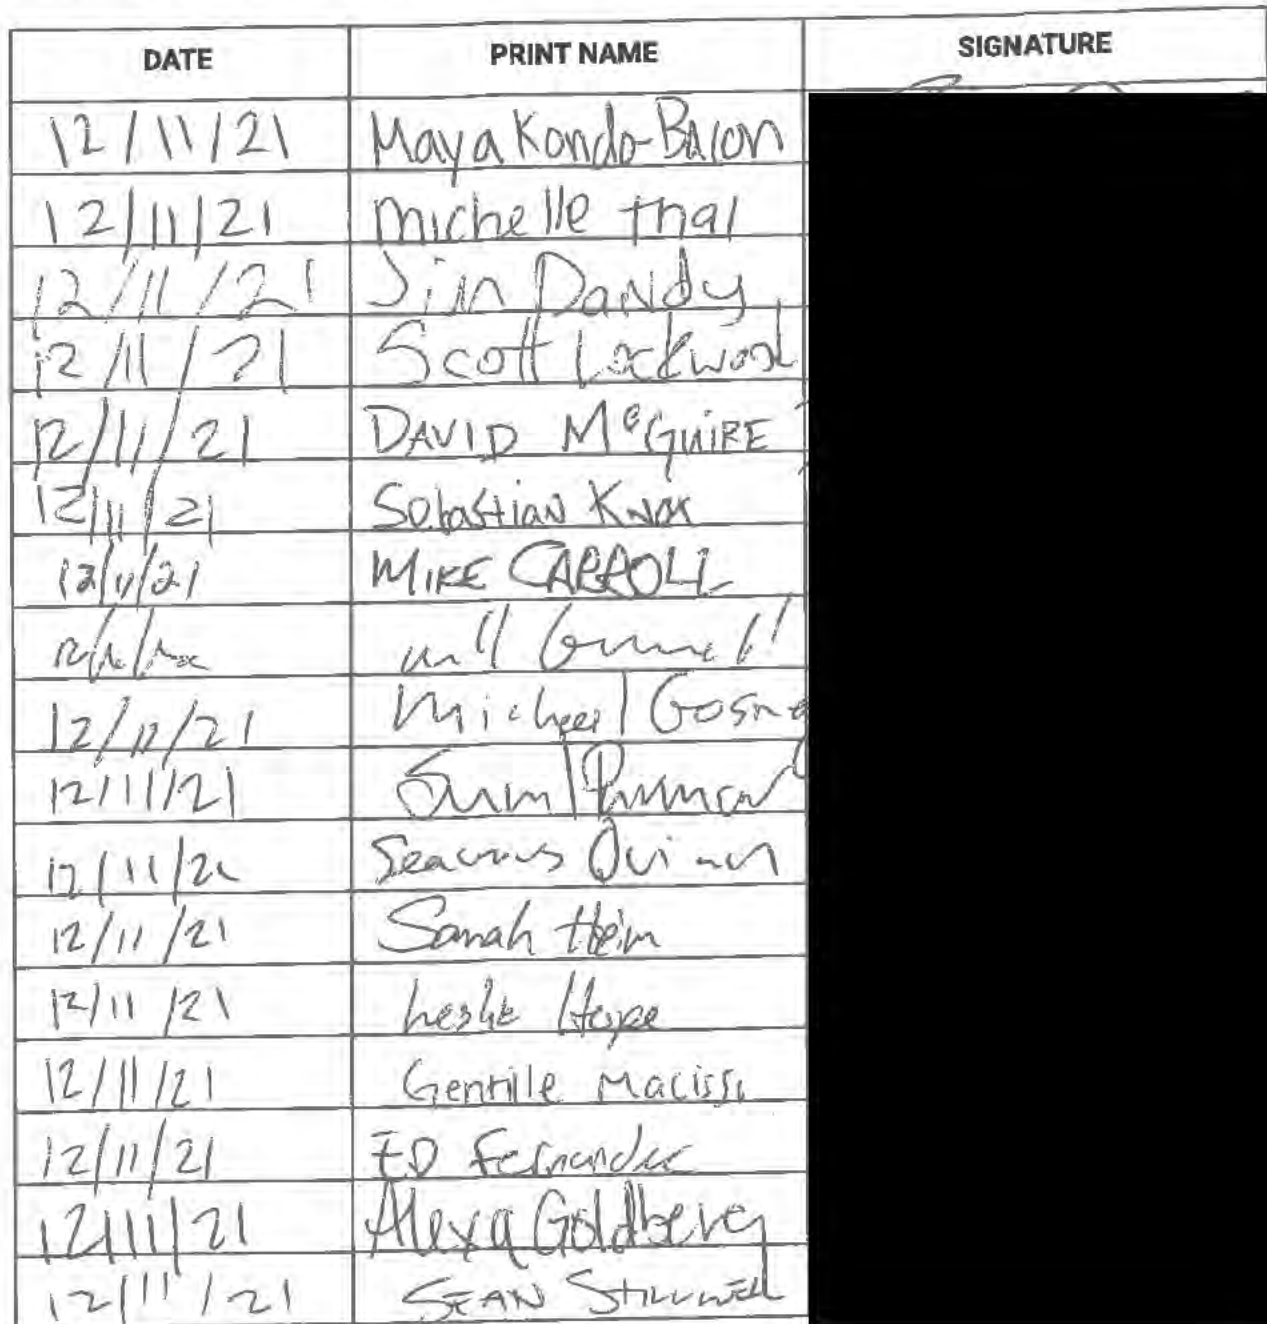 DATE PRINT NAME SIGNATURE
12/11/21 Maya Kondo-Bacon
12/11/21 Michelle Thal
12/11/21 Jim Dandy
12/11/21 Scott Lockwood
12/11/21 DAVID McGUIRE
12/11/21 Sebastian Knox
12/11/21 MIKE CARROLL
12/11/21 Michael Gosne
12/11/21
12/11/21 Seamus Quinn
12/11/21 Sarah Heim
12/11/21 Leslie
12/11/21 Gentille Macissi
12/11/21 ED Fernandez
12/11/21 Alexa Goldberg
12/11/21 SEAN STILLWELL